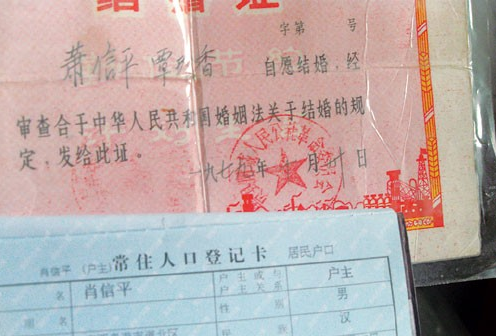 结婚证
字第 号
萧信平 谭 香 自愿结婚,经
审查合于中华人民共和国婚姻法关于结婚的规
定,发给此证。
一九七九年 月廿日
常住人口登记卡
肖信平 (户主) 居民户口
名 肖信平 户主或与户主关系 户主
性别 男
民族 汉